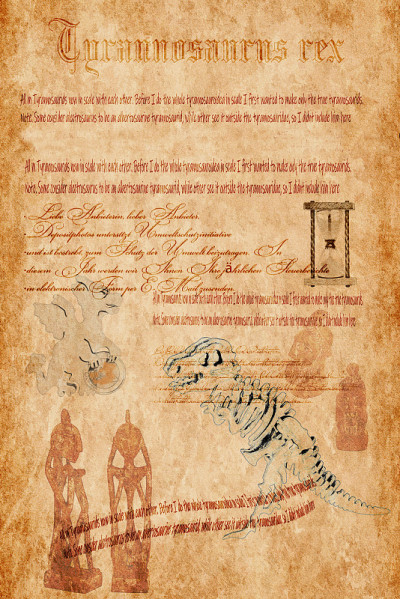 Tyrannosaurus rex
All in Tyrannosaurus now in scale with each other. Before I do the whole tyrannosauroidea in scale I first wanted to make only the true tyrannosaurids.
Note, Some consider alectrosaurus to be an albertosaurine tyrannosaurid, while other see it outside the tyrannosauridae, so I didnt include him here
All in Tyrannosaurus now in scale with each other. Before I do the whole tyrannosauroidea in scale I first wanted to make only the true tyrannosaurids.
Note, Some consider alectrosaurus to be an albertosaurine tyrannosaurid, while other see it outside the tyrannosauridae, so I didnt include him here
Liebe Anbieterin, lieber Anbieter,
Depositphotos unterstützt Umweltschutzinitiative
und ist bestrebt, zum Schutz der Umwelt beizutragen. In
diesem Jahr werden wir Ihnen Ihre jährlichen Steuerberichte
in elektronischer Form per E-Mail zusenden.
All in Tyrannosaurus now in scale with each other. Before I do the whole tyrannosauroidea in scale I first wanted to make only the true tyrannosaurids.
Note, Some consider alectrosaurus to be an albertosaurine tyrannosaurid, while other see it outside the tyrannosauridae, so I didnt include him here
All in Tyrannosaurus now in scale with each other. Before I do the whole tyrannosauroidea in scale I first wanted to make only the true tyrannosaurids.
Note, Some consider alectrosaurus to be an albertosaurine tyrannosaurid, while other see it outside the tyrannosauridae, so I didnt include him here